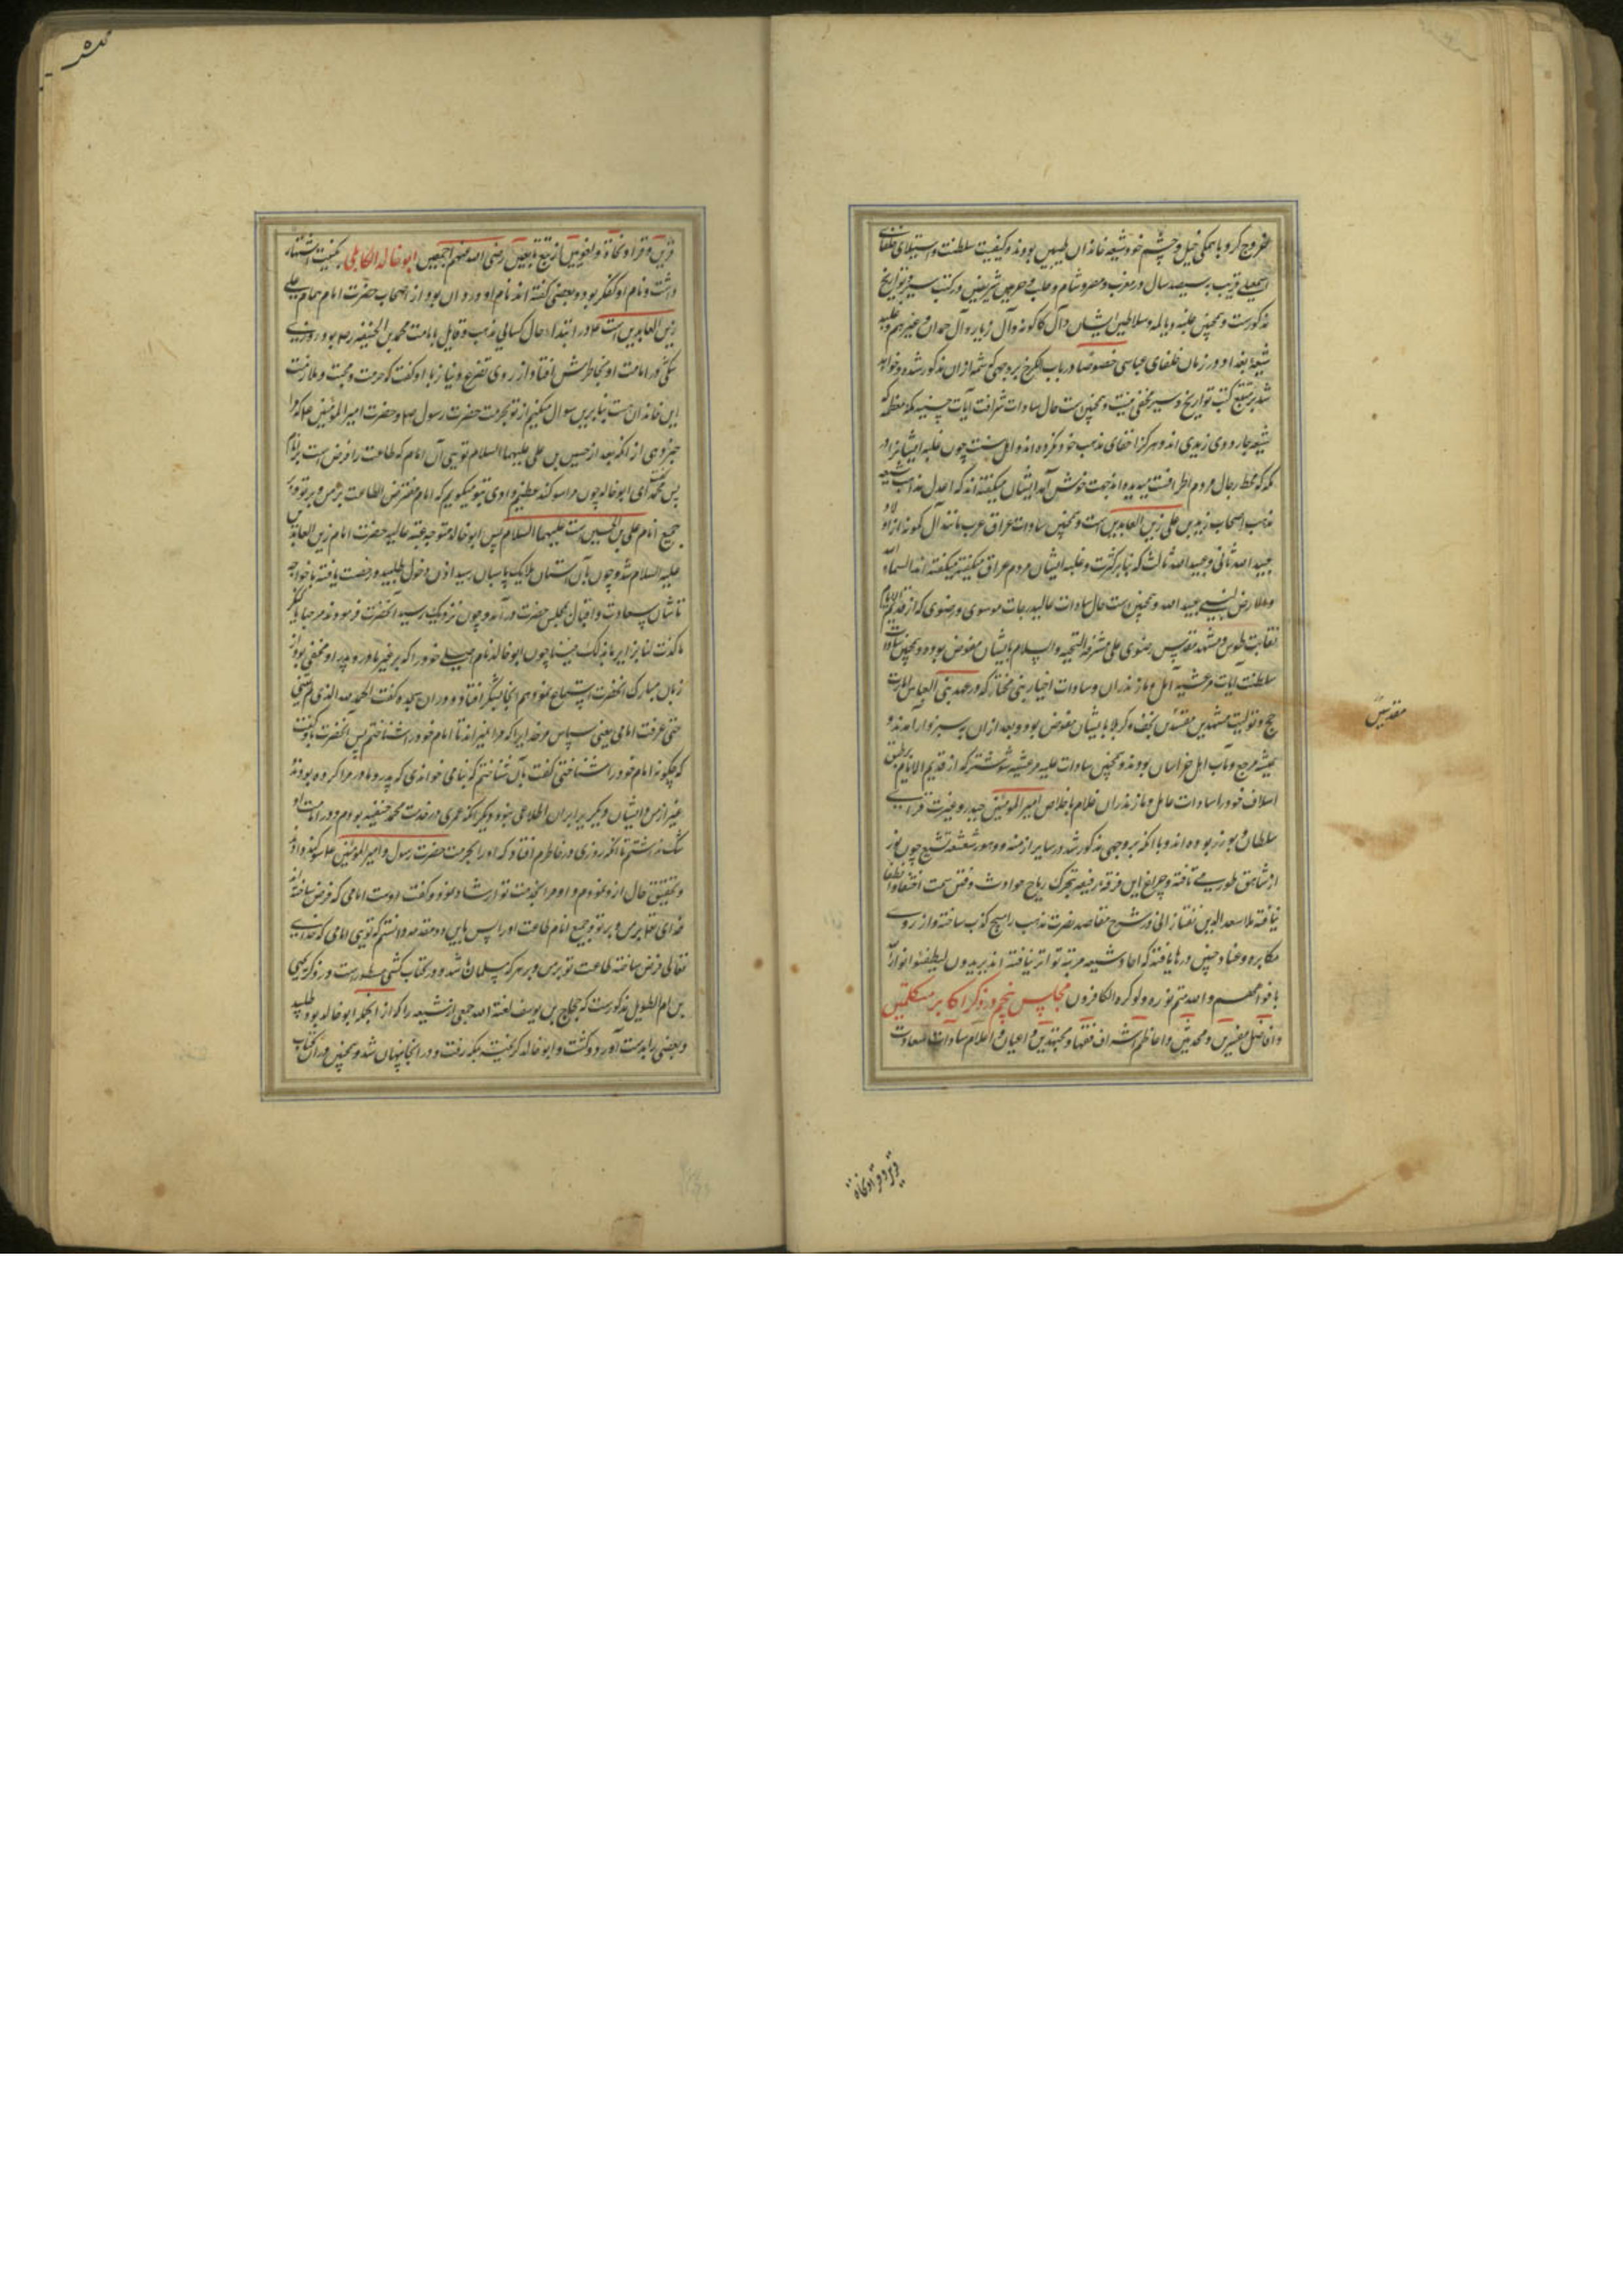 خروج کرد با همگی خیل و حشم خود شیعه خاندان طیبین بودند و کیفیت سلطنت و استیلای خلفای
اسمعیلی قریب به سیصد سال در مغرب و مصر و شام و حلب و حرمین شریفین در کتب سیر و تواریخ
مذکورست و همچنین غلبه دیالمه و سلاطین ایشان و آل کاکویه و آل زیار و آل حمدان و غیرهم و غلبه
شیعه بغداد در زمان خلفای عباسی خصوصا در باب الکرخ بر وجهی که شمه از ان مذکور شده و خواهد
شد بر متتبع کتب تواریخ و سیر مخفی نیست و همچنین ست حال سادات شرافت آیات حسنیه مکه معظمه که
شیعه جارودی زیدی اند و هرگز اخفای مذهب خود نکرده اند و اهل سنت چون غلبه ایشانرا در
مکه که محط رجال مردم اطرافست میدیده اند جهت خوش آمد ایشان میگفته اند که اعدل مذاهب شیعه
مذهب اصحاب زید بن علی زین العابدین است و همچنین سادات عراق عرب مانند آل کمونه از اولاد
عبید الله ثانی و عبید الله ثالث که بنابر کثرت و غلبه ایشان مردم عراق میگفته اند السماء لله
والارض لبنی عبید الله و همچنین است حال سادات عالیدرجات موسوی و رضوی که از قدیم الایام
نقابت طوس و مشهد مقدس رضوی علی مشرفه التحیه والسلام بایشان مفوض بوده و همچنین سادات
سلطنت آیات مرعشیه آمل و مازندران و سادات اخیار بنی مختار که در عهد بنی العباس امارت
حج و تولیت مشهدین مقدسین نجف و کربلا بایشان مفوض بود و بعد از ان بسبزوار آمدند و
همیشه مرجع و مآب اهل خراسان بودند و همچنین سادات علیه مرعشیه شوشتر که از قدیم الایام بر طبق
اسلاف خود را سادات عامل و مازندران غلام باخلاص امیر المومنین حیدر و غیرت قزای
سلطان بوزر بوده اند و با انکه بر وجهی مذکور شد در سایر ازمنه و دهور شعشعه تشیع چون نور
از شاهق طور می تافته و چراغ این فرقه رفیعه بتحرک ریاح حوادث و فتن سمت اختفا و انطفا
نیافته ملا سعد الدین تفتازانی در شرح مقاصد نصرت مذهب را سیح کذب ساخته و از روی
مکابره و عناد چنین درهایافته که احادیث شیعه مرتبه تواتر نیافته اند یریدون لیطفئوا نور الله
بافواههم والله متم نوره ولو کره الکافرون مجلس پنجم در ذکر اکابر متکلمین
و افاضل مفسرین و محدثین و اعاظم اشراف فقها و مجتهدین و اعیان و اعلام سادات و سعادت
مقدسین
قرین و قراء و نحاة
قرین و قراء و نحاة و لغویین از تبع تابعین رضی الله عنهم اجمعین ابو خالد الکابلی بکنیت اشتهار
داشت و نام او کنکر بود و بعضی گفته اند نام او وردان بود از اصحاب حضرت امام همام علی
زین العابدین است ع و در ابتداء حال کیسانی مذهب و قایل بامامت محمد بن الحنفیه رض بود روزی
شکی در امامت او بخاطرش افتاد از روی تضرع و نیاز باو گفت که حرمت و محبت و ملازمت
این خاندان هست بنابرین سوال میکنم از تو بحرمت حضرت رسول ص و حضرت امیر المومنین ع که مرا
خبر دهی از انکه بعد از حسین بن علی علیهما السلام تویی آن امام که طاعت را فرض است بر مردم
پس محمد گفت ای ابو خالد چون مرا سوکند عظیم دادی بتو میگویم که امام مفترض الطاعت بر من و بر تو و بر
جمیع انام علی بن الحسین است علیهما السلام پس ابو خالد متوجه عتبه عالیه حضرت امام زین العابدین
علیه السلام شد و چون بآن آستان ملایک پاسبان رسید اذن دخول طلبید و رخصت یافته با خواجه
تاشان سعادت و اقبال بمجلس حضرت درآمد و چون نزدیک رسید آنحضرت فرمودند مرحبا یا کنکر
ما کنت لنا بزایر ما بدا لک فینا چون ابو خالد نام اصلی خود را که بر غیر مادر و پدر او مخفی بود از
زبان مبارک آنحضرت استماع نمود هم آنجا بشکر افتاد و در ان سجده گفت الحمد لله الذی لم یمتنی
حتی عرفت امامی یعنی سپاس مر خدایرا که مرا نمیراند تا امام خود را شناختم پس آنحضرت باو گفت
که چگونه امام خود را شناختی گفت بآن شناختم که بنامی خواندی که پدر و مادر مرا کرده بودند
غیر از من و ایشان دیگریرا بران اطلاعی نبود و دیگر انکه عمری در خدمت محمد حنفیه بودم و در امامت او
شک نداشتم تا آنکه روزی در خاطرم افتاد که او را بحرمت حضرت رسول و امیر المومنین ع سوکند دادم
و تحقیق حال ازو نمودم و او مرا بخدمت تو ارشاد نمود و گفت اوست امامی که فرض ساخته است
خدای تعالی بر من و بر تو و جمیع انام طاعت او را پس باین دو مقدمه دانستم که تویی امامی که خدای
تعالی فرض ساخته طاعت تو بر من و بر هر که مسلمان باشد و در کتاب کشی مسطورست در ذکر یحیی
بن ام الطویل مذکورست که حجاج بن یوسف لعنة الله جمعی از شیعه را که از انجمله ابو خالد بود طلبید
و بعضی را بدست آورد و کشت و ابو خالد گریخته بمکه رفت و در آنجا پنهان شد و همچنین در ان کتاب